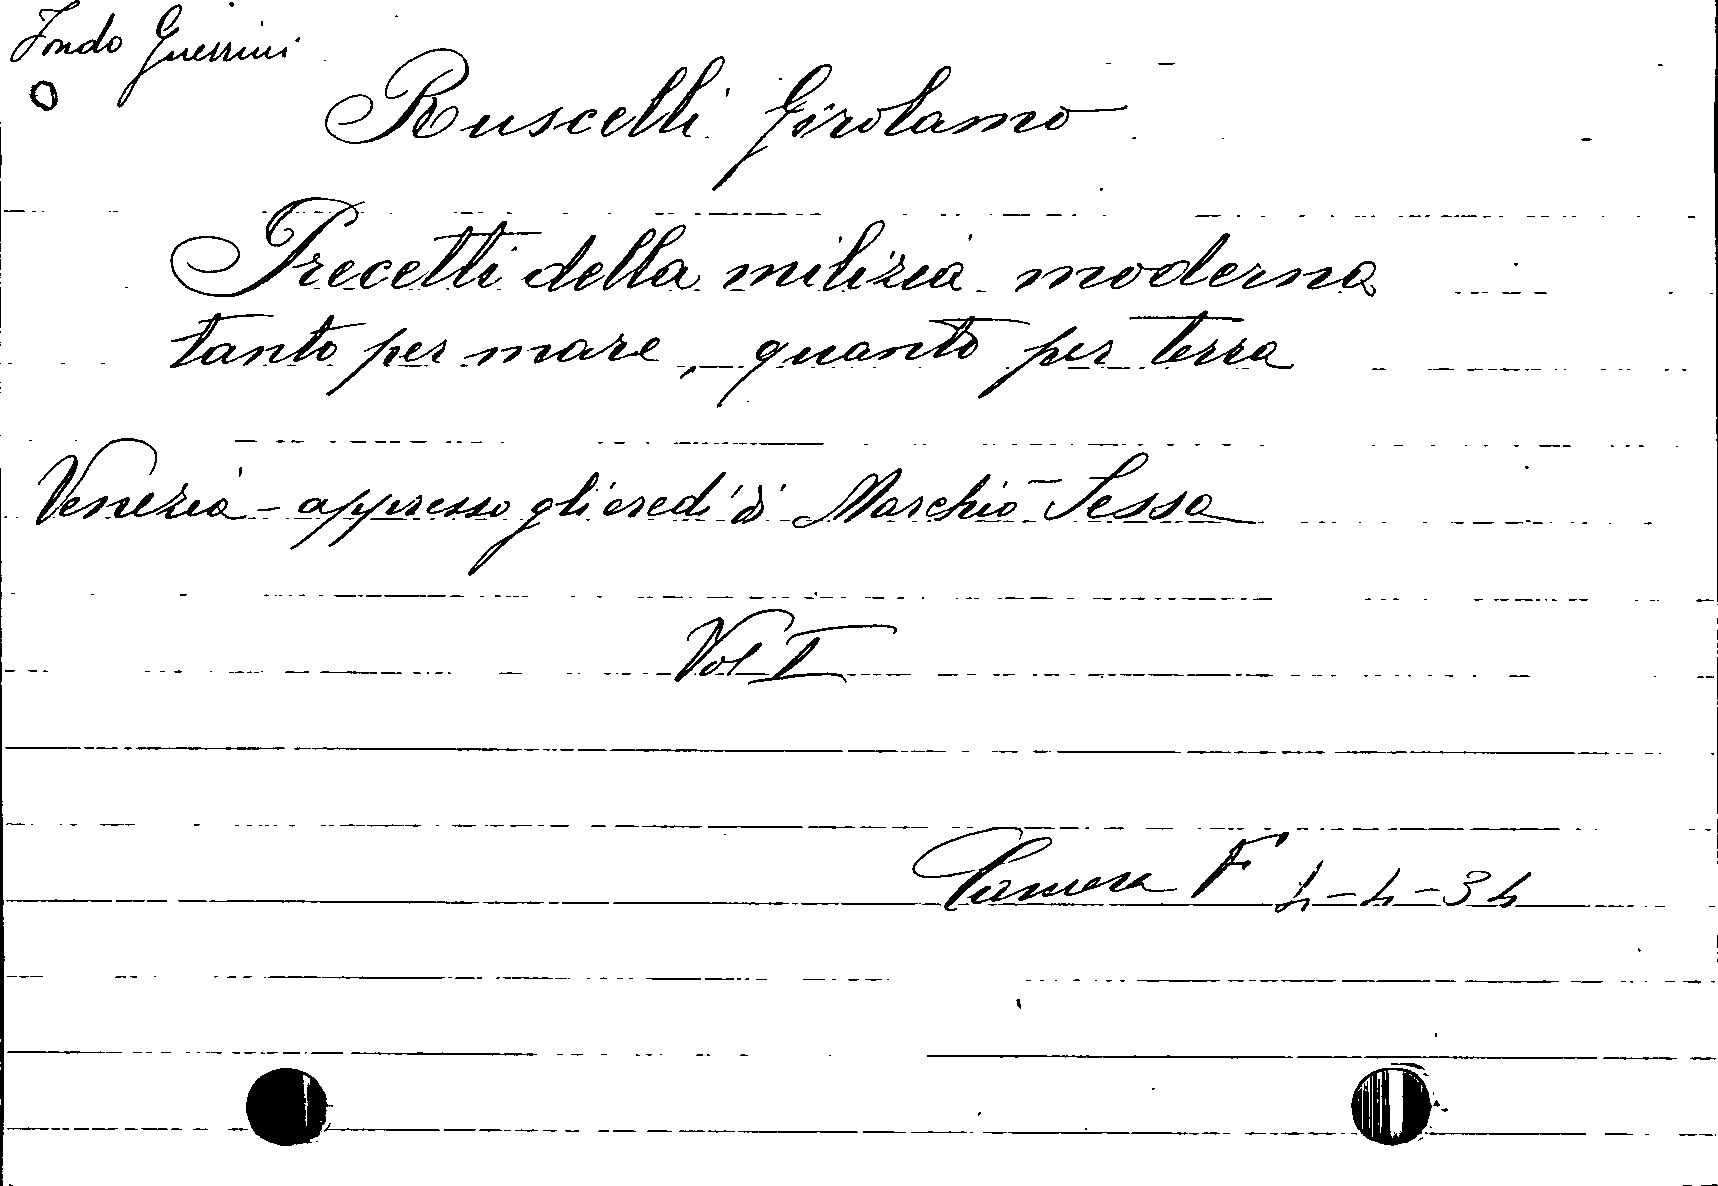 Fondo Guerrini
O
Ruscelli Girolamo
Precetti della milizia moderna
tanto per mare, quanto per terra
Venezia - appresso gli eredi di Marchiò Sessa
Vol I
Camera F 4-4-34